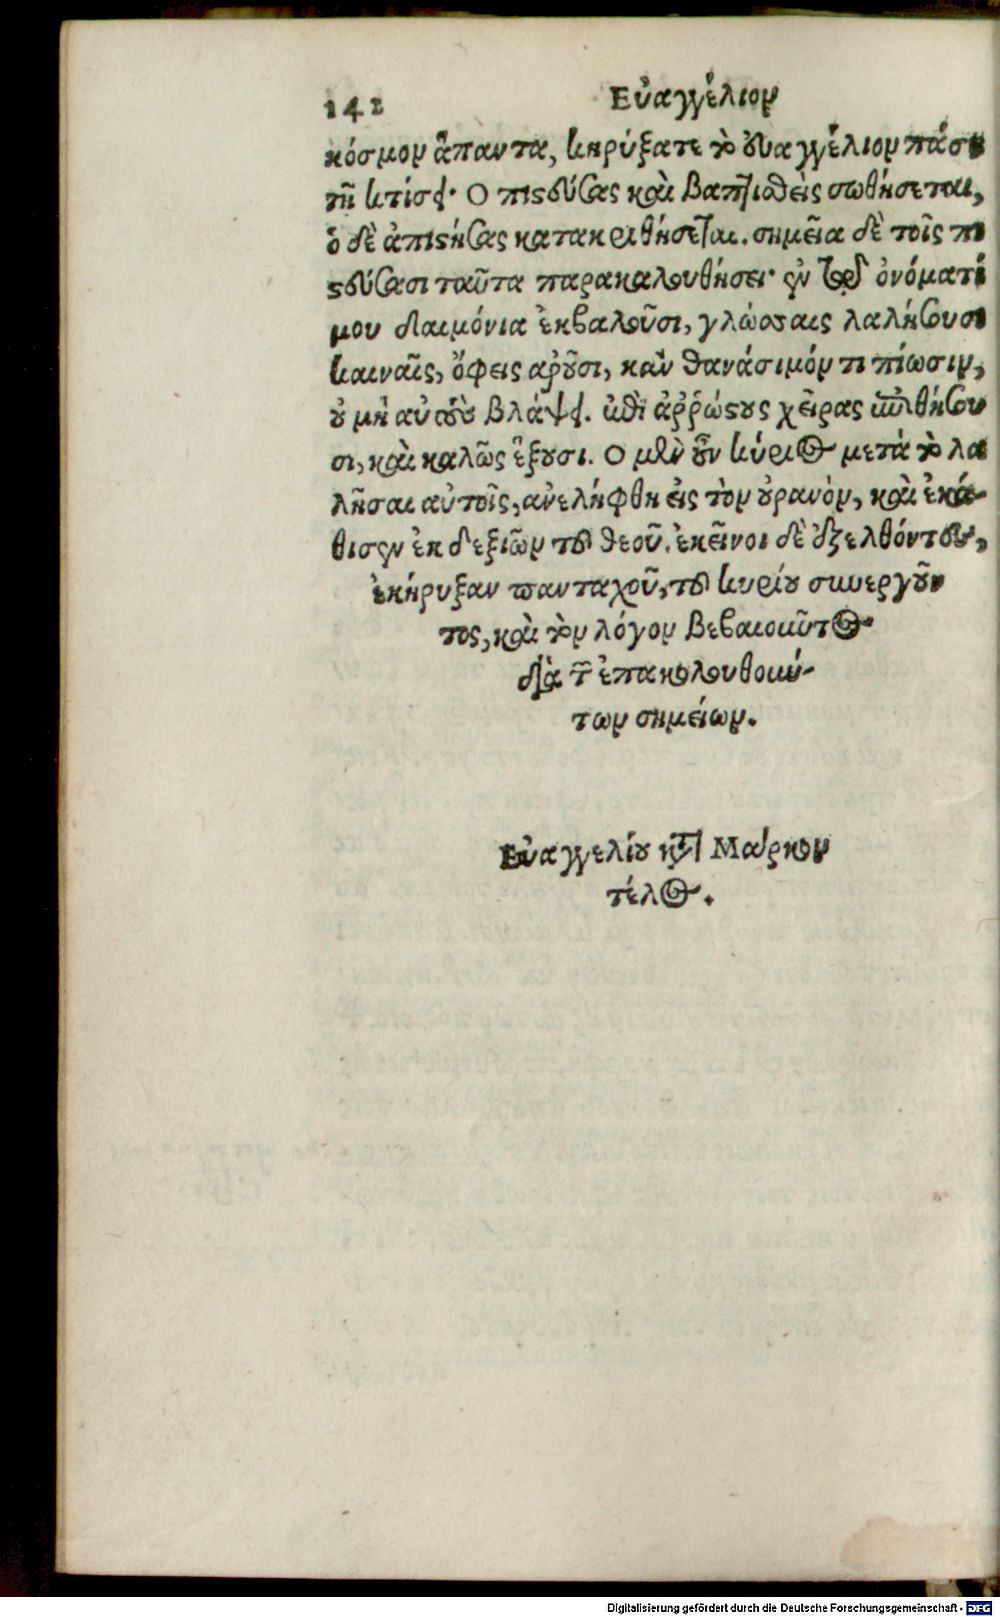 142 Εὐαγγέλιον
κόσμον ἅπαντα, κηρύξατε τὸ εὐαγγέλιον πάσῃ
τῇ κτίσει· Ο πιστεύσας καὶ βαπτισθεὶς σωθήσεται,
ὁ δὲ ἀπιστήσας κατακριθήσεται. σημεῖα δὲ τοῖς πι
στεύσασι ταῦτα παρακολουθήσει· ἐν τῷ ὀνόματί
μου δαιμόνια ἐκβαλοῦσι, γλώσσαις λαλήσουσι
καιναῖς, ὄφεις αροῦσι, κἂν θανάσιμόν τι πίωσιν,
οὐ μὴ αὐτοὺς βλάψει. ἐπὶ ἀῤῥώστους χεῖρας ἐπιθήσου
σι, καὶ καλῶς ἕξουσι. Ο μὲν οὖν κύριος μετὰ τὸ λα
λῆσαι αὐτοῖς, ἀνελήφθη εἰς τὸν οὐρανὸν, καὶ ἐκά-
θισεν ἐκ δεξιῶν τοῦ θεοῦ. ἐκεῖνοι δὲ ἐξελθόντες,
ἐκήρυξαν πανταχοῦ, τοῦ κυρίου συνεργοῦν
τος, καὶ τὸν λόγον βεβαιοῦντος
διὰ τῶν ἐπακολουθούν-
των σημείων.
Εὐαγγελίου κατὰ Μάρκον
τέλος.
Digitalisierung gefördert durch die Deutsche Forschungsgemeinschaft - DFG